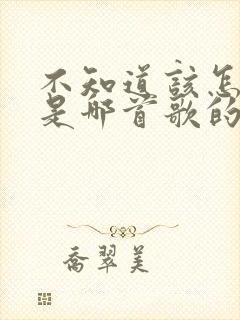 不知道該怎
是哪首歌的
喬翠美